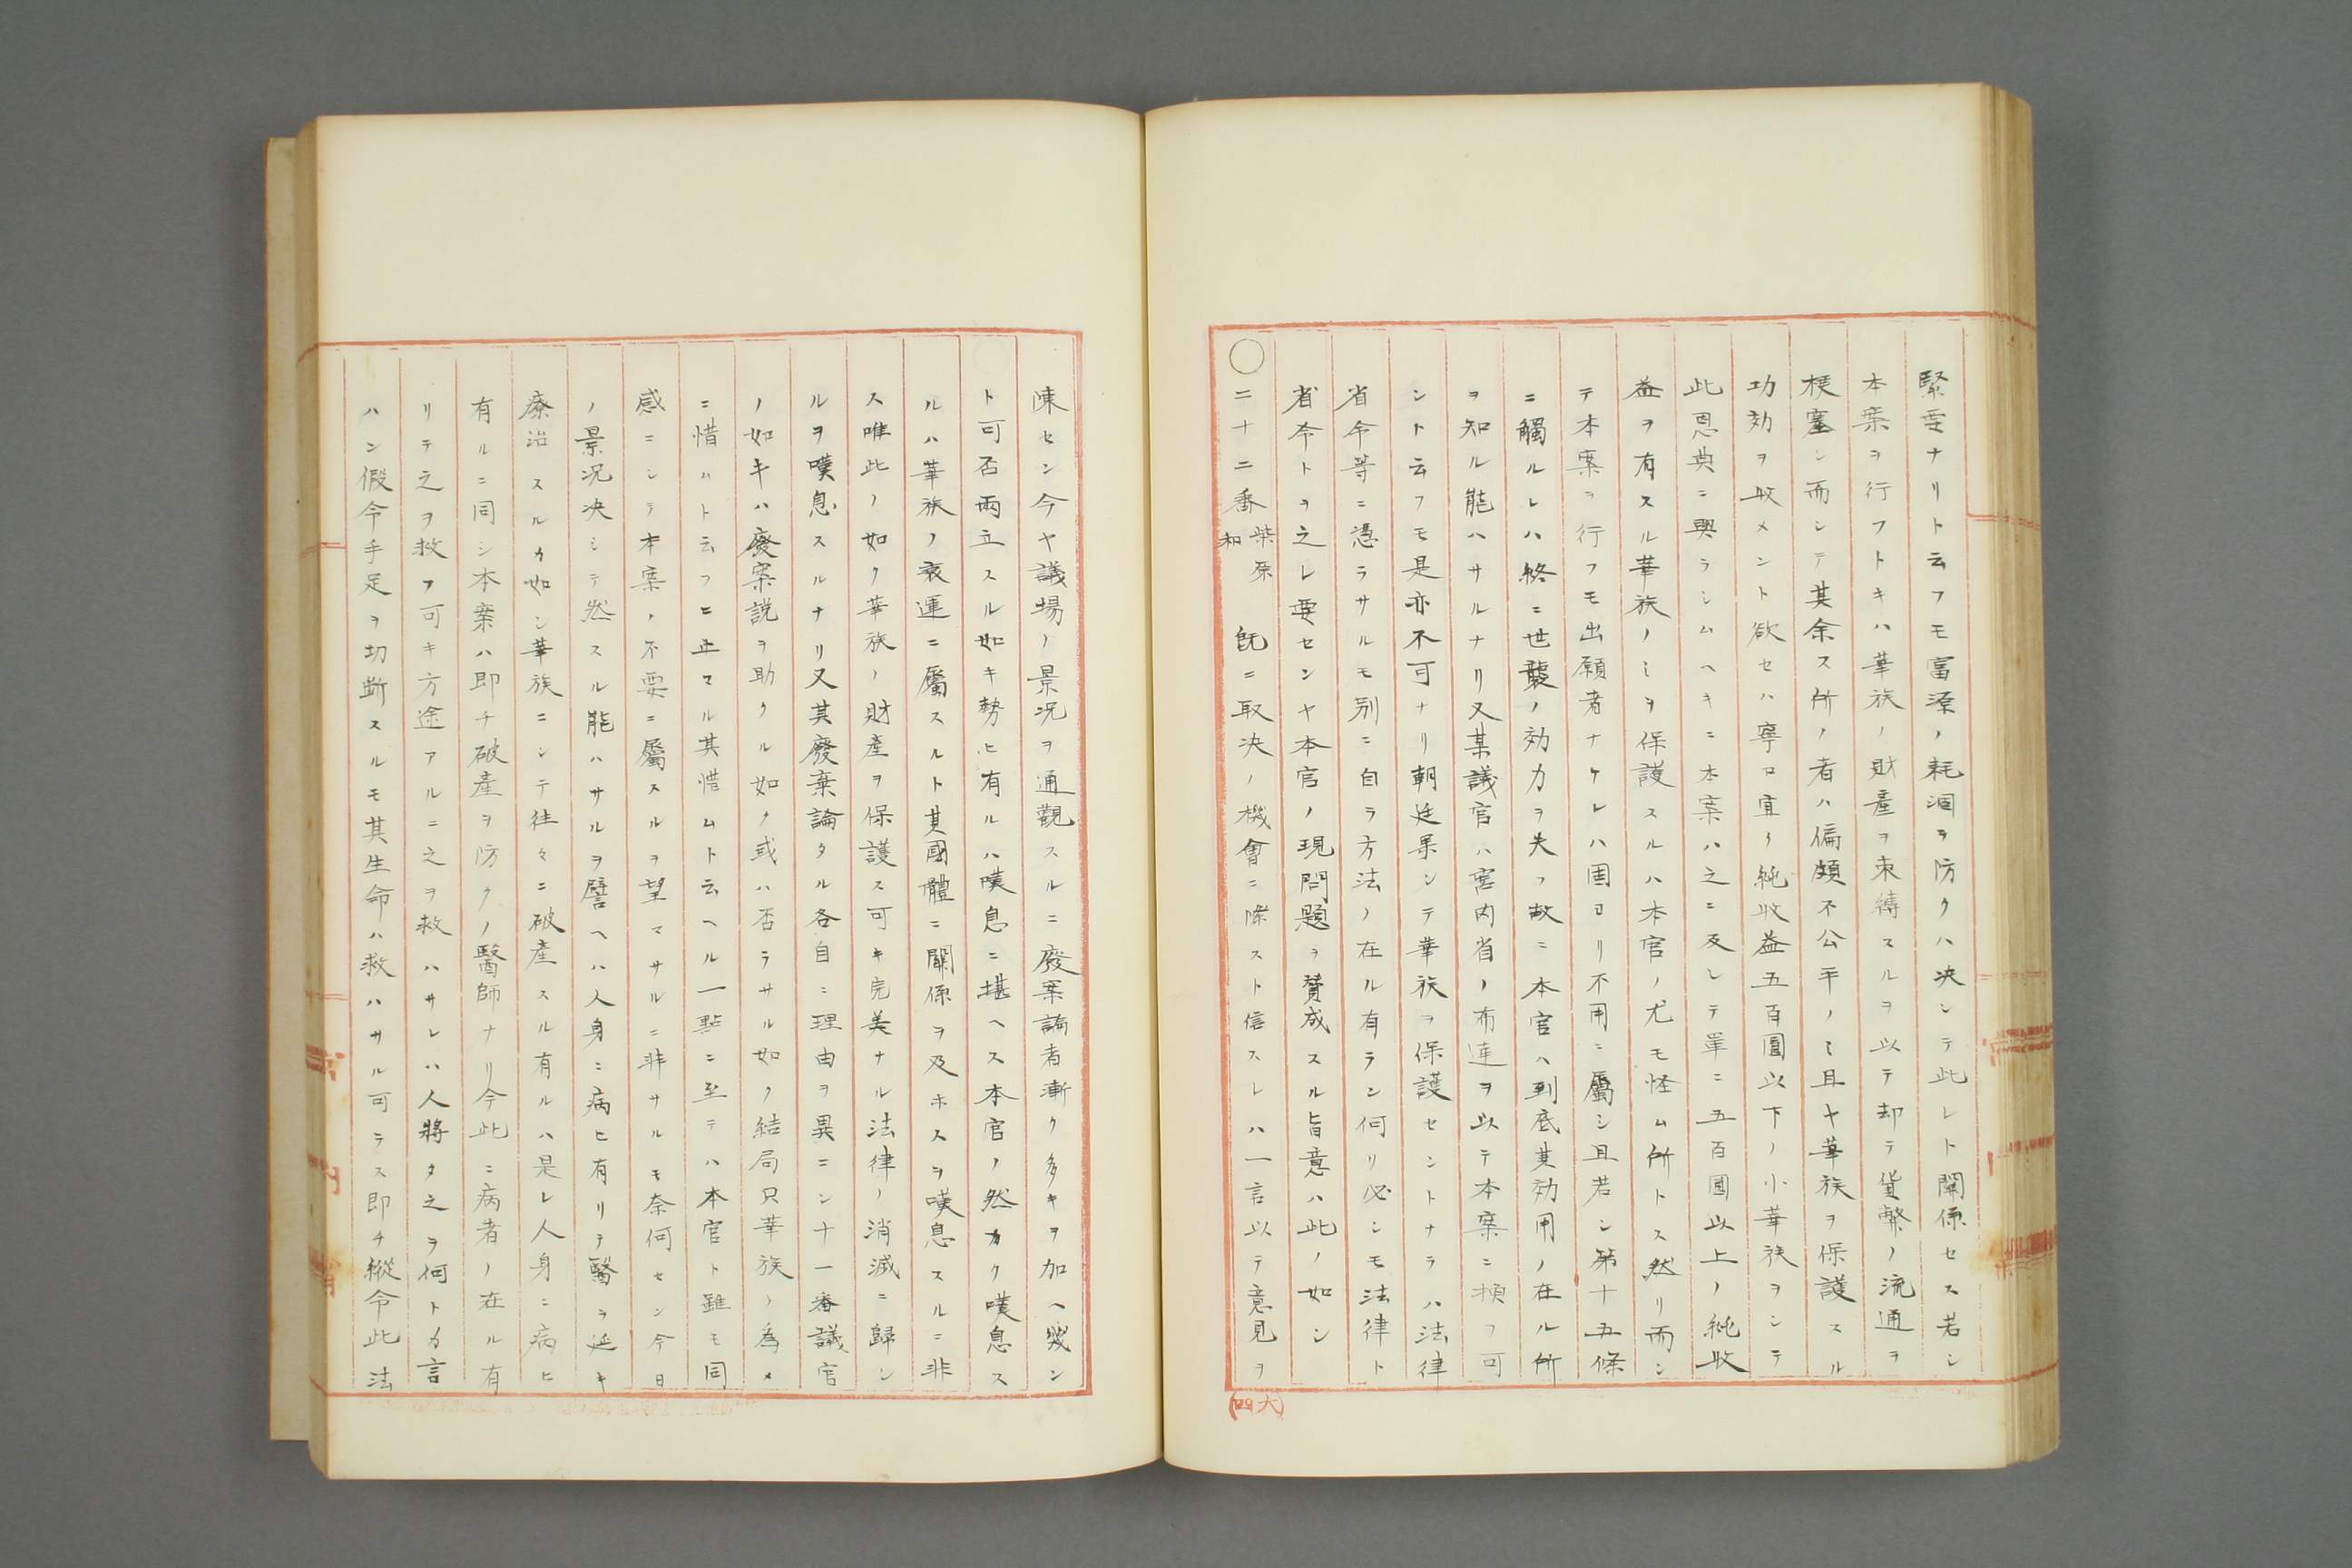 緊要ナリト云フモ富源ノ耗涸ヲ防クハ决シテ此レト關係セス若シ
本案ヲ行フトキハ華族ノ財產ヲ束縛スルヲ以テ却テ貨幣ノ流通ヲ
梗塞シ而シテ其余ス所ノ者ハ偏頗不公平ノミ且ヤ華族ヲ保護スル
功効ヲ收メント欲セハ寧ロ宜ク純收益五百圓以下ノ小華族ヲシテ
此恩典ニ與ラシムヘキニ本案ハ之ニ反シテ單ニ五百圓以上ノ純收
益ヲ有スル華族ノミヲ保護スルハ本官ノ尤モ怪ム所トス然リ而シ
テ本案ヲ行フモ出願者ナケレハ固ヨリ不用ニ屬シ且若シ第十五條
ニ觸ルレハ終ニ世襲ノ効力ヲ失フ故ニ本官ハ到底其効用ノ在ル所
ヲ知ル能ハサルナリ又某議官ハ宮内省ノ布達ヲ以テ本案ニ換フ可
シト云フモ是亦不可ナリ朝廷果シテ華族ヲ保護セントナラハ法律
省令等ニ憑ラサルモ別ニ自ラ方法ノ在ル有ラン何リ必シモ法律ト
省令トヲ之レ要センヤ本官ノ現問題ヲ賛成スル旨意ハ此ノ如シ
○二十二番柴原和 既ニ取决ノ機會ニ際スト信スレハ一言以テ意見ヲ
(四大)
陳セン今ヤ議場ノ景况ヲ通觀スルニ廢案論者漸ク多キヲ加ヘ幾ン
ト可否兩立スル如キ勢ヒ有ルハ嘆息ニ堪ヘス本官ノ然カク嘆息ス
ルハ華族ノ衰運ニ屬スルト其國體ニ關係ヲ及ホスヲ嘆息スルニ非
ス唯此ノ如ク華族ノ財產ヲ保護ス可キ完美ナル法律ノ消滅ニ歸シ
ルヲ嘆息スルナリ又其廢棄論タル各自ニ理由ヲ異ニシ十一番議官
ノ如キハ廢案説ヲ助クル如ク或ハ否ラサル如ク結局只華族ノ爲メ
ニ惜ハト云フニ止マル其惜ムト云ヘル一點ニ至テハ本官ト雖モ同
感ニシテ本案ノ不要ニ屬スルヲ望マサルニ非サルモ奈何セン今日
ノ景况决シテ然スル能ハサルヲ譬ヘハ人身ニ病ヒ有リテ醫ヲ延キ
療治スルカ如シ華族ニシテ徃々ニ破產スル有ルハ是レ人身ニ病ヒ
有ルニ同シ本案ハ即チ破產ヲ防クノ醫師ナリ今此ニ病者ノ在ル有
リテ之ヲ救フ可キ方途アルニ之ヲ救ハサレハ人將タ之ヲ何トカ言
ハン假令手足ヲ切斷スルモ其生命ハ救ハサル可ラス即チ縱令此法